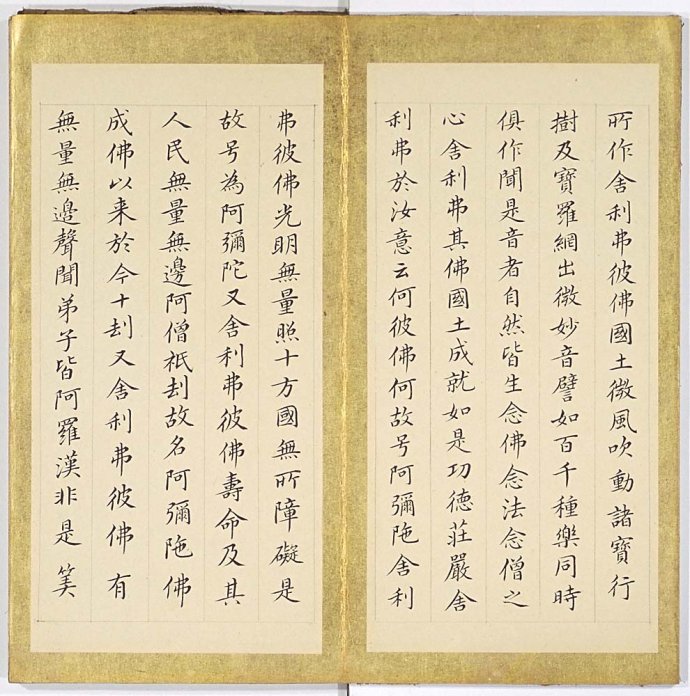 所作舍利弗彼佛國土微風吹動諸寶行
樹及寶羅網出微妙音譬如百千種樂同時
俱作聞是音者自然皆生念佛念法念僧之
心舍利弗其佛國土成就如是功德莊嚴舍
利弗於汝意云何彼佛何故号阿彌陁舍利
弗彼佛光明無量照十方國無所障礙是
故号為阿彌陀又舍利弗彼佛壽命及其
人民無量無邊阿僧祇刧故名阿彌陁佛
成佛以来於今十刧又舍利弗彼佛有
無量無邊聲聞弟子皆阿羅漢非是筭